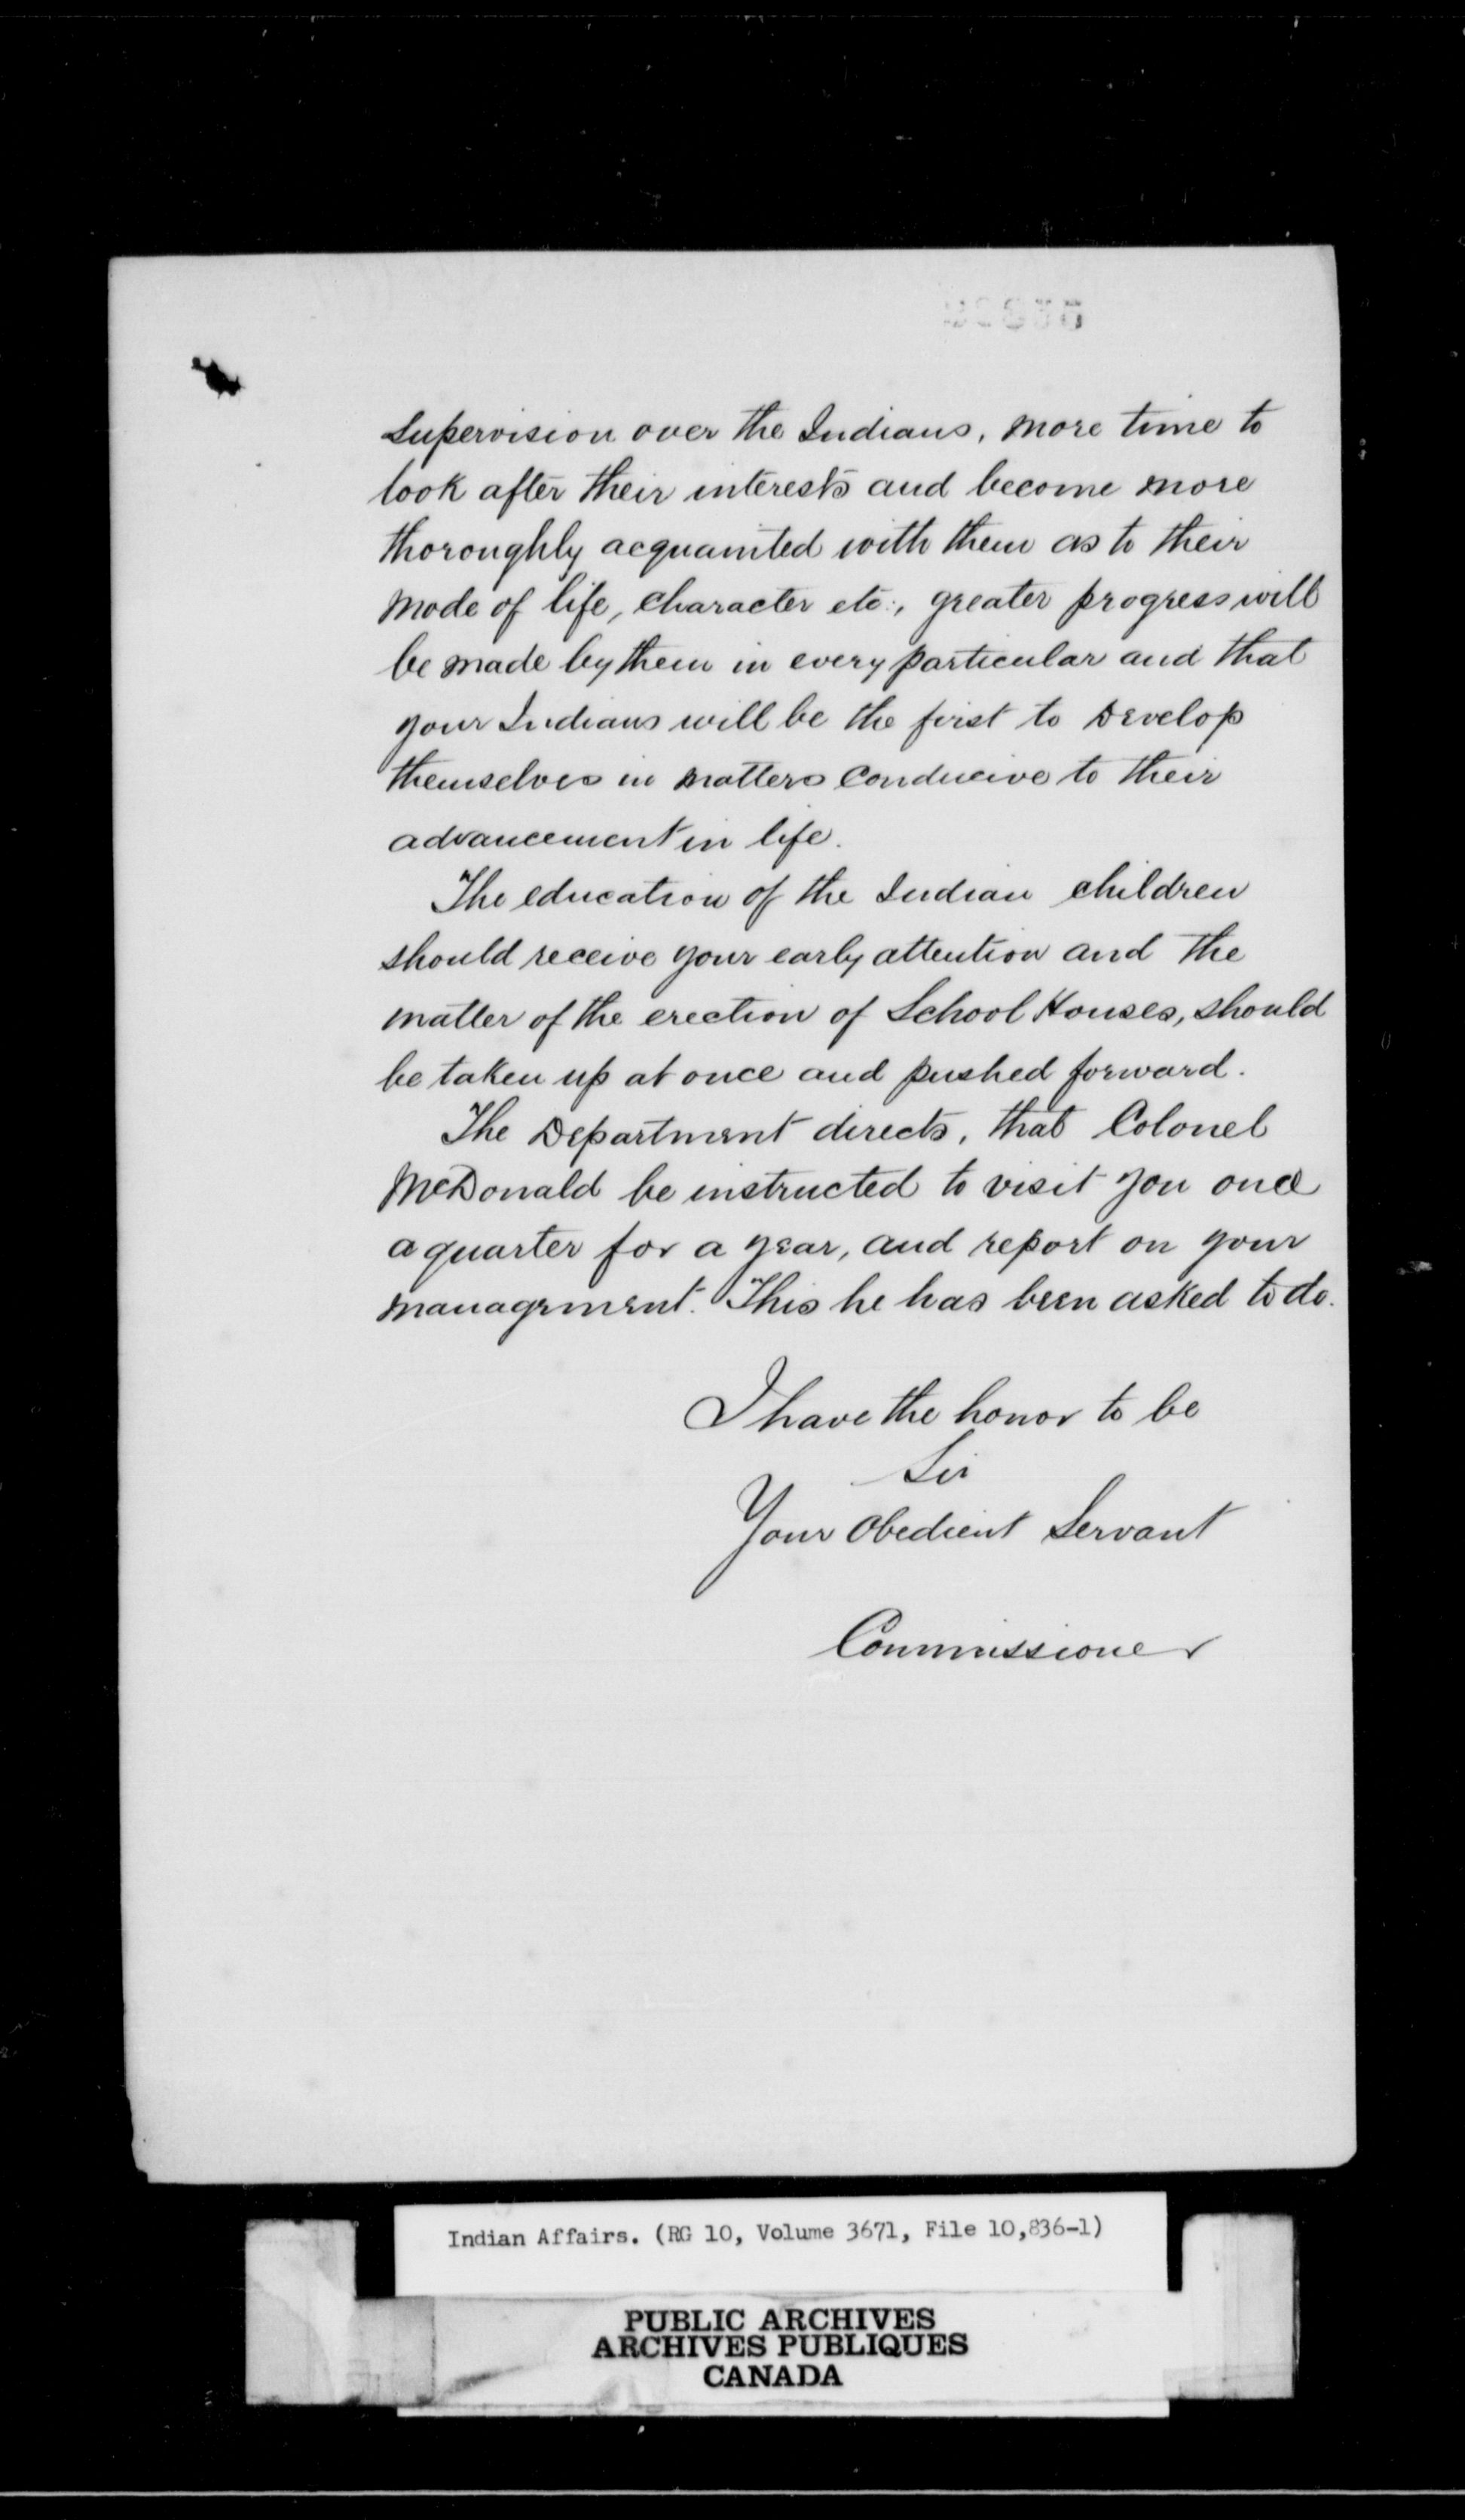 supervision over the Indians, more time to
look after their interests and become more
thoroughly acquainted with them as to their
mode of life, character etc:, greater progress will
be made by them in every particular and that
your Indians will be the first to Develop
themselves in matters Conducive to their
advancement in life.
The education of the Indian children
should receive your early attention and the
matter of the erection of School Houses, should
be taken up at once and pushed forward.
The Department directs, that Colonel
McDonald be instructed to visit you once
a quarter for a year, and report on your
management. This he has been asked to do.
I have the honor to be
Sir
Your Obedient Servant
Commissioner
Indian Affairs. (RG 10, Volume 3671, File 10,836-1)
PUBLIC ARCHIVES
ARCHIVES PUBLIQUES
CANADA